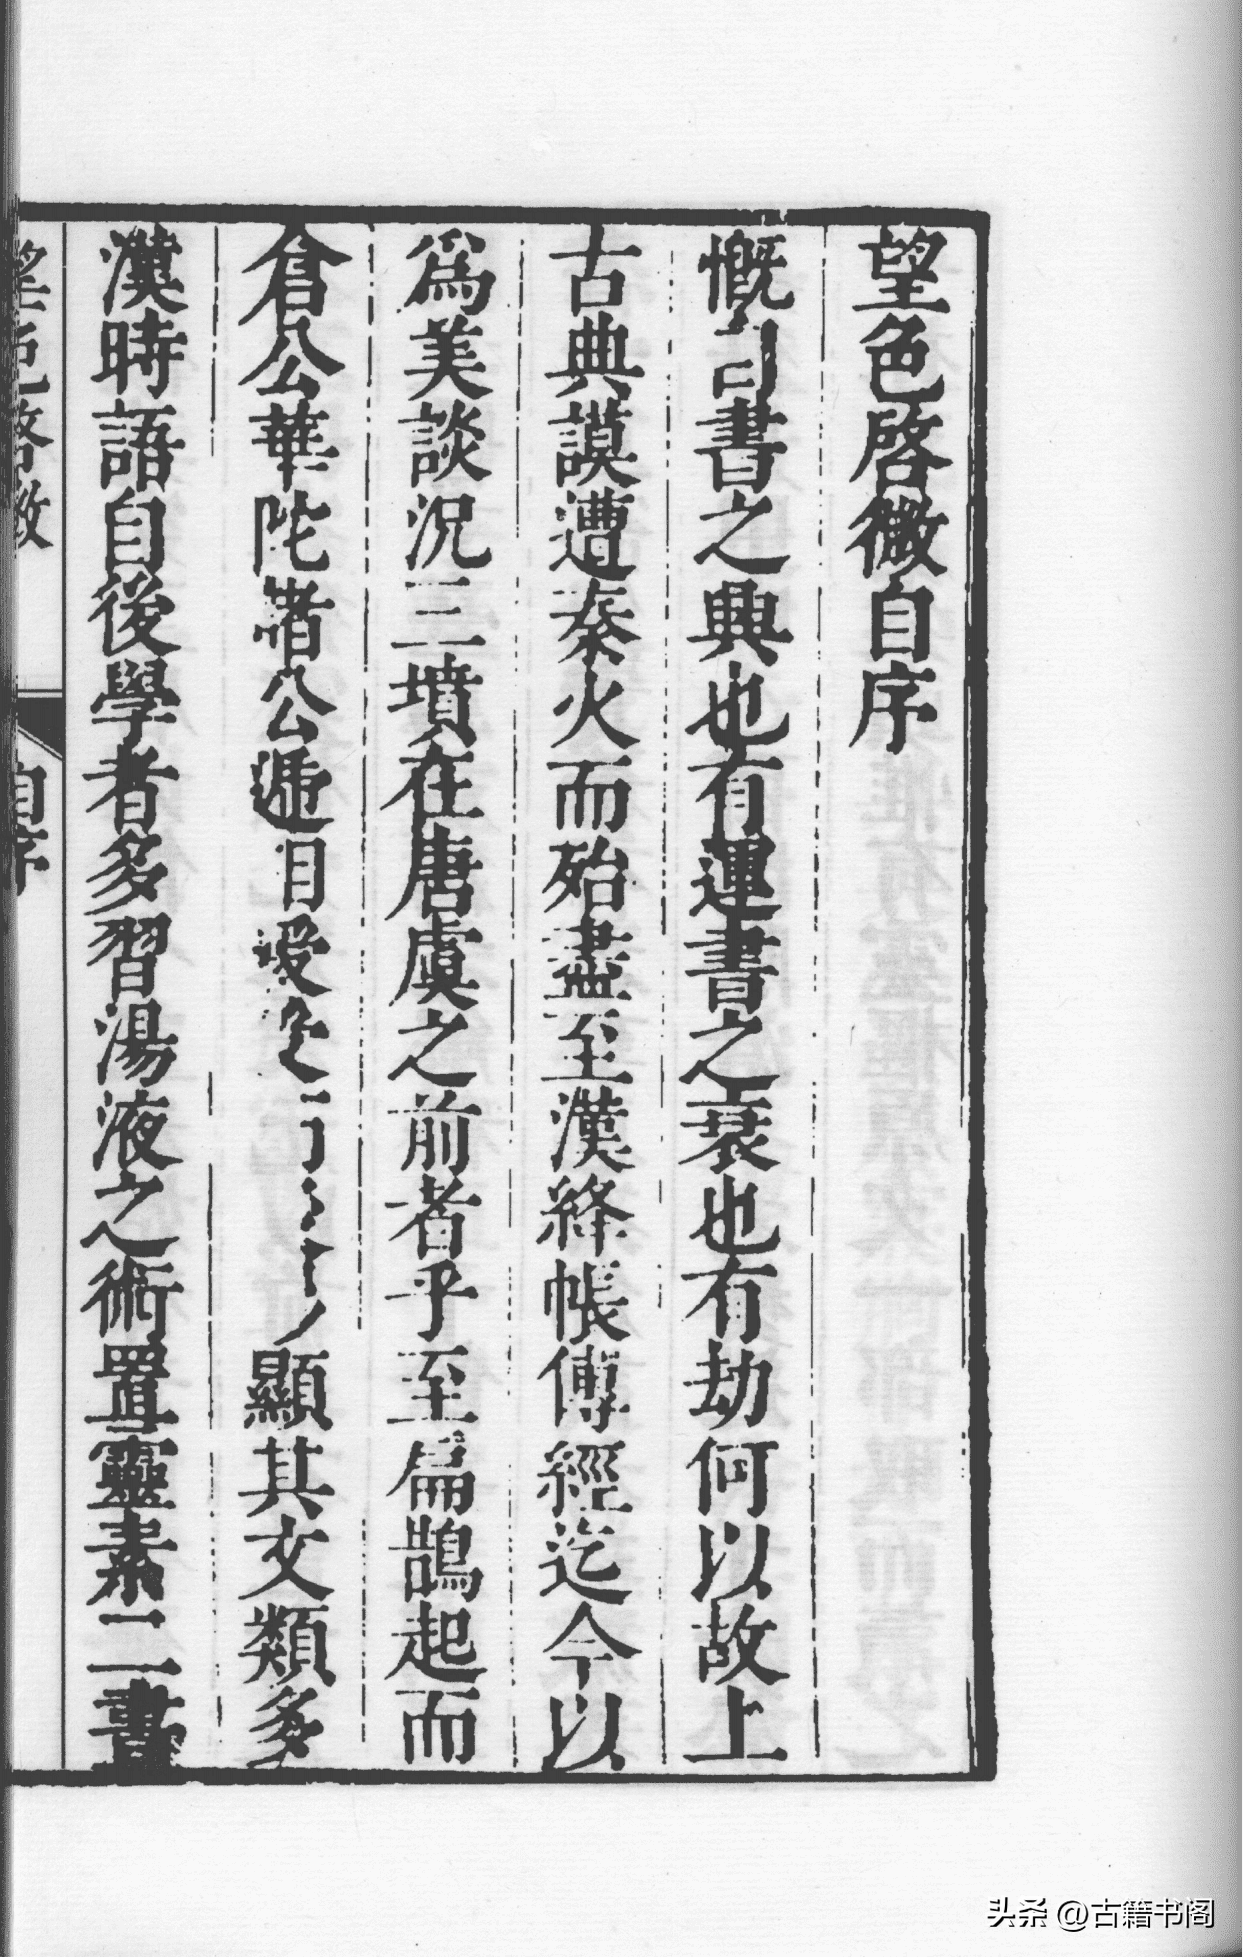 望色啓微自序
慨自書之興也有運書之衰也有劫何以故上
古典謨遭秦火而殆盡至漢絳帳傳經迄今以
爲美談況三墳在唐虞之前者乎至扁鵲起而
倉公華陀諸公遞相授受顯其文類多
漢時語自後學者多習湯液之術置靈素二書
望色啓微
自序
头条 @古籍书阁